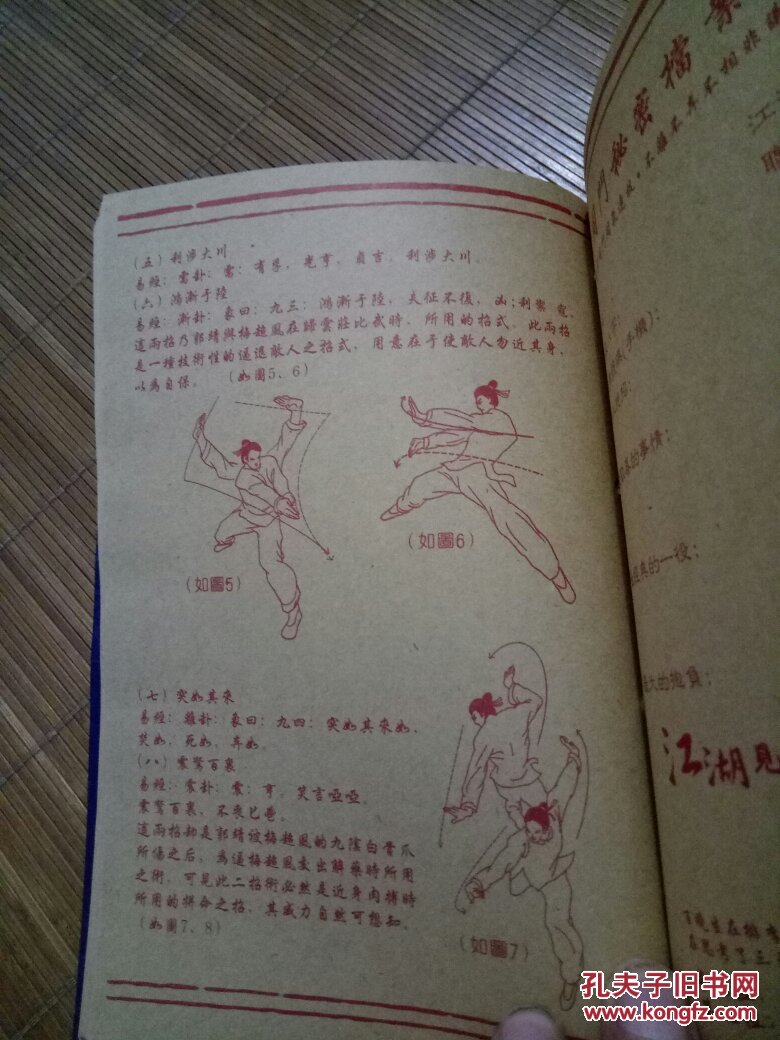 (五) 利涉大川
易經: 需卦: 需: 有孚, 光亨, 貞吉, 利涉大川。
(六) 鴻漸于陸
易經: 漸卦: 象曰: 九三: 鴻漸于陸, 夫征不復, 凶; 利禦寇,
這兩招乃郭靖與梅超風在歸雲莊比武時, 所用的招式, 此兩招
是一種技術性的逼退敵人之招式, 用意在于使敵人勿近其身,
以為自保。 (如圖5、6)
(如圖5)
(如圖6)
(七) 突如其來
易經: 離卦: 象曰: 九四: 突如其來如,
焚如, 死如, 弃如。
(八) 震驚百裏
易經: 震卦: 震: 亨, 笑言啞啞,
震驚百裏, 不喪匕鬯。
這兩招却是郭靖被梅超風的九陰白骨爪
所傷之后, 為逼梅超風交出解藥時所用
之術, 可見此二招術必然是近身肉搏時
所用的拼命之招, 其威力自然可想知。
(如圖7、8)
(如圖7)
門秘密檔案
江
聯
(手機):
的事情:
的一役:
大的抱負:
江湖見
孔夫子旧书网
www.kongfz.com